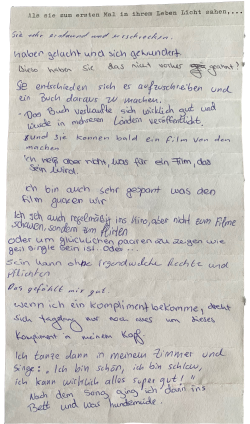 Als sie zum ersten Mal in ihrem Leben Licht sahen,...
Sie sehr erstaund und erschrocken.
haben gelacht und sich gewundert
Wieso haben Sie das nicht vorher gespührt?
SIE entschieden sich es aufzuschreiben und
ein Buch daraus zu machen.
Das Buch verkaufte sich wirklich gut und
wurde in mehreren Ländern veröffentlicht.
und Sie können bald ein Film von den
machen
Ich weiß aber nicht, was für ein Film, das
sein wird.
Ich bin auch sehr gespant was den
Film
Ich geh auch regelmäßig ins Kino, aber nicht zum Filme
schauen, sondern zum flirten
oder um glücklichen paaren zu zeigen wie
geil single sein ist. oder...
sein kann ohne Irgendwelche Rechte und
Pflichten
Das gefählt mir gut.
wenn ich ein Kompliment bekomme,
sich tagelang nur noch um dieses
Kompliment in meinem Kopf.
Ich tanze dann in meinem Zimmer und
singe: „Ich bin schön, ich bin schlau,
ich kann wirklich alles super gut!"
Nach dem Song ging ich dann ins
Bett und war hundemüde.